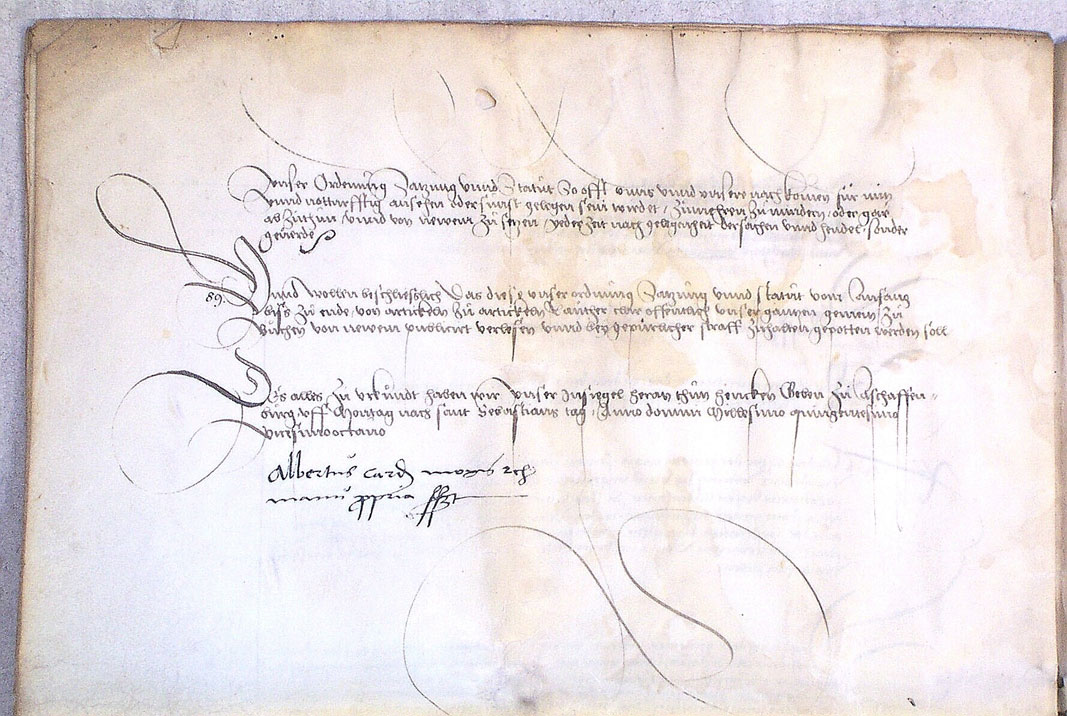 unser Ordenung Satzung vnnd Statut So offt vnns vnnd vnsere nachkomen für nutz
vnnd notturfftig ansehen oder sunst gelegen sein wirdet, Zumehren Zu mindern, oder gar
ab Zuthun, vnnd von newem Zu setzen, yeder Zeit nach gelegenheit der sachen vnnd hendel, sonder
geuerde
89. Vnnd wollen beschließlich Das diese vnser ordnung Satzung vnnd statut vom Anfang
biss Zu ende von artickeln Zu artickeln Lauther clar offentlich vnser gantzen gemein, Zu
Buchen von newem publicirt verlesen vnnd bey gepurlicher straff Zuhalten gepotten werden soll
Des alles Zu vrkundt haben wir vnser Insiegel heran thun hencken Geben Zu Aschaffen-
burg vff Montag nach sant Sebastians tag, Anno domini Millesimo quingentesimo
vicesimooctauo
Albertus Card mogus
manu ppria sszt